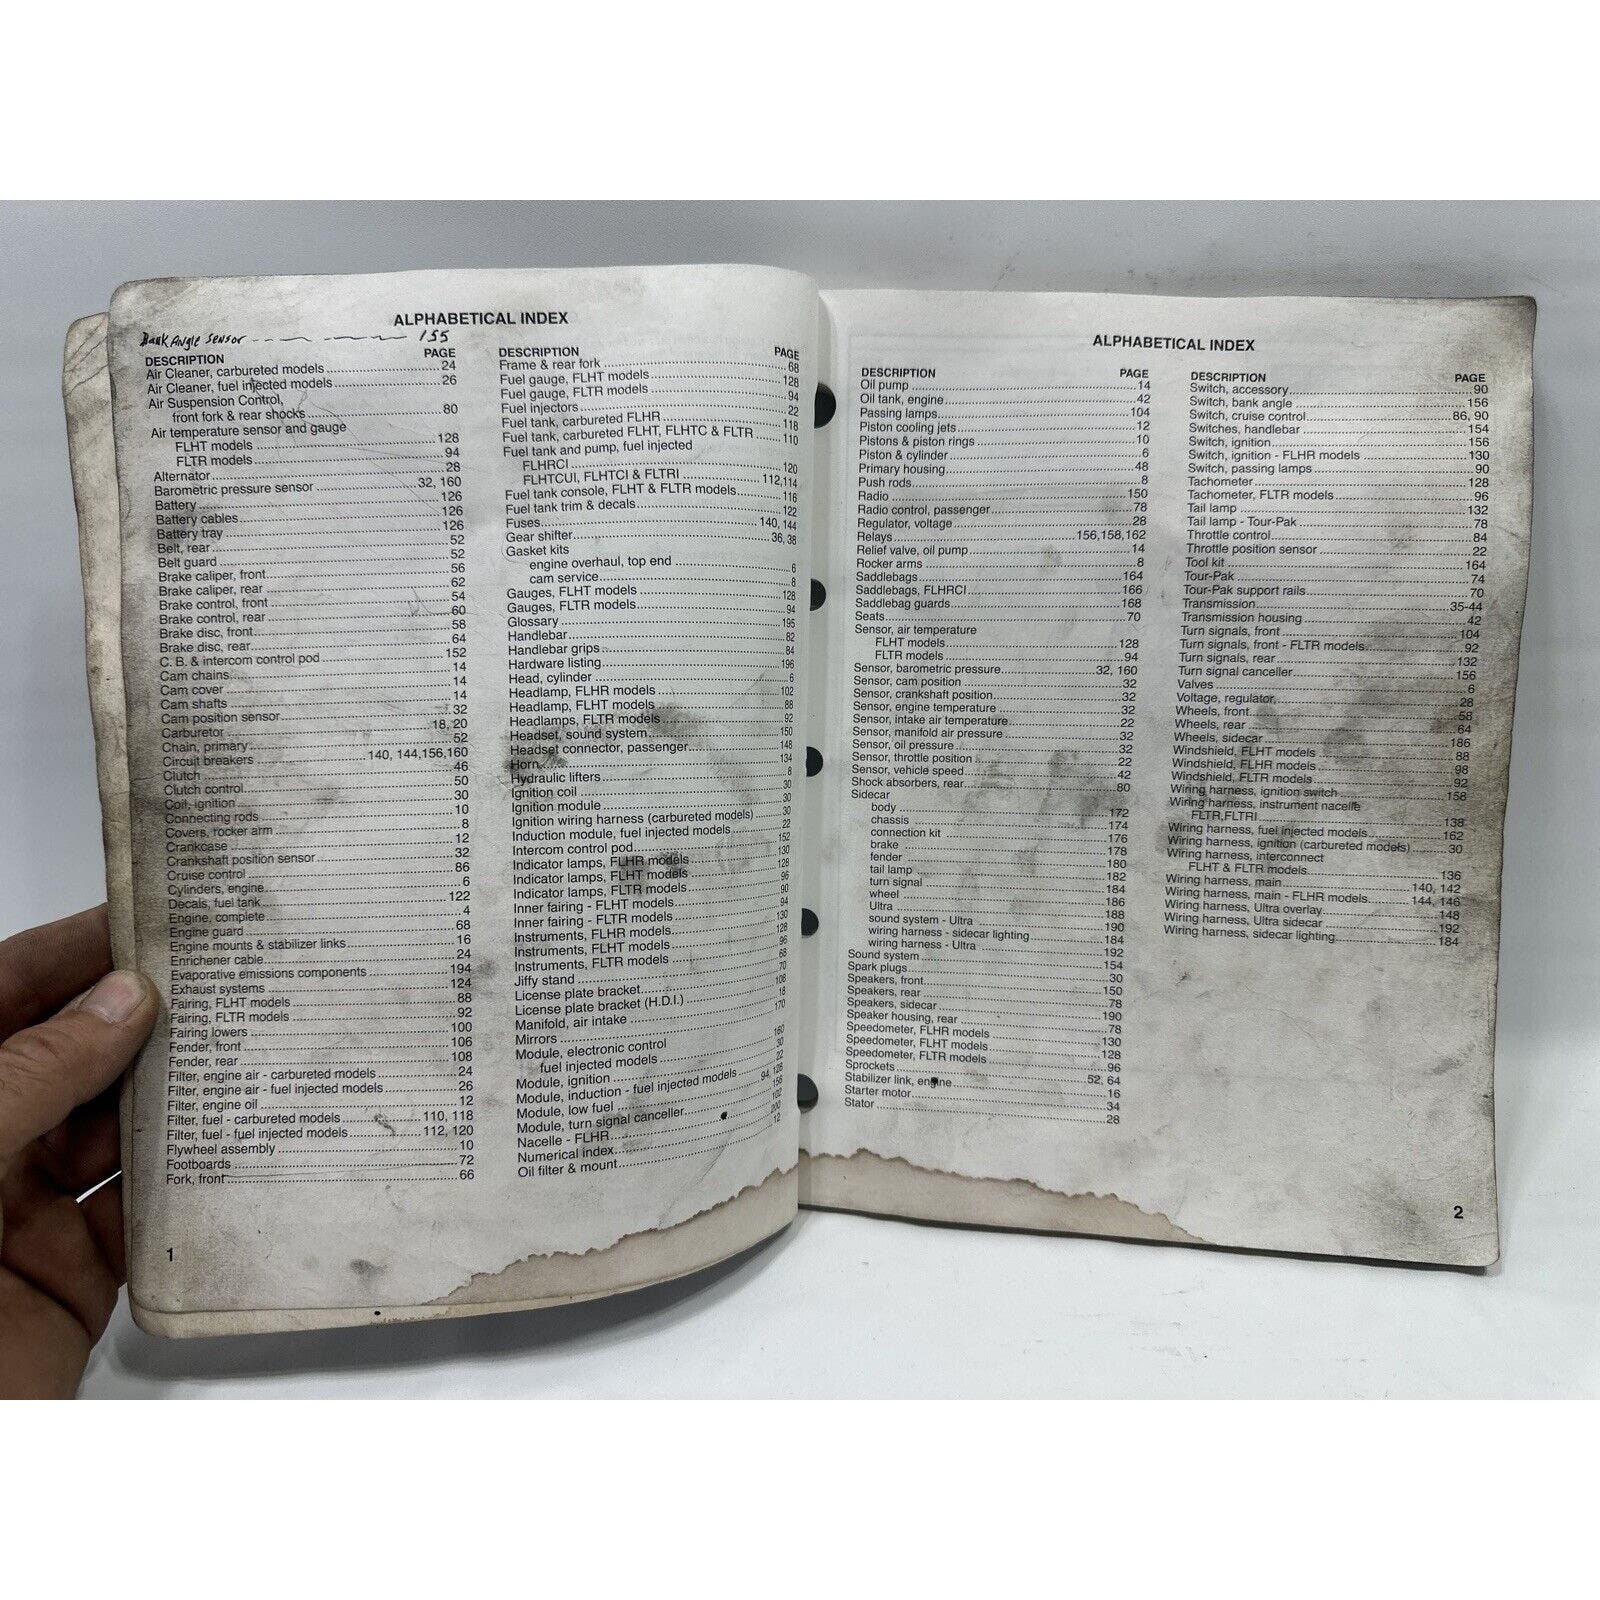 ALPHABETICAL INDEX
Bank Angle Sensor 155
DESCRIPTION PAGE
Air Cleaner, carbureted models 24
Air Cleaner, fuel injected models 26
Air Suspension Control,
front fork & rear shocks 80
Air temperature sensor and gauge
FLHT models 128
FLTR models 94
Alternator 28
Barometric pressure sensor 32, 160
Battery 126
Battery cables 126
Battery tray 126
Belt, rear 52
Belt guard 52
Brake caliper, front 56
Brake caliper, rear 62
Brake control, front 54
Brake control, rear 60
Brake disc, front 58
Brake disc, rear 64
C. B. & intercom control pod 152
Cam chains 14
Cam cover 14
Cam shafts 14
Cam position sensor 32
Carburetor 18, 20
Chain, primary 52
Circuit breakers 140, 144,156,160
Clutch 46
Clutch control 50
Coil, ignition 30
Connecting rods 10
Covers, rocker arm 8
Crankcase 12
Crankshaft position sensor 32
Cruise control 86
Cylinders, engine 6
Decals, fuel tank 122
Engine, complete 4
Engine guard 68
Engine mounts & stabilizer links 16
Enrichener cable 24
Evaporative emissions components 194
Exhaust systems 124
Fairing, FLHT models 88
Fairing, FLTR models 92
Fairing lowers 100
Fender, front 106
Fender, rear 108
Filter, engine air - carbureted models 24
Filter, engine air - fuel injected models 26
Filter, engine oil 12
Filter, fuel - carbureted models 110, 118
Filter, fuel - fuel injected models 112, 120
Flywheel assembly 10
Footboards 72
Fork, front 66
DESCRIPTION PAGE
Frame & rear fork 68
Fuel gauge, FLHT models 128
Fuel gauge, FLTR models 94
Fuel injectors 22
Fuel tank, carbureted FLHR 118
Fuel tank, carbureted FLHT, FLHTC & FLTR 110
Fuel tank and pump, fuel injected
FLHRCI 120
FLHTCUI, FLHTCI & FLTRI 112,114
Fuel tank console, FLHT & FLTR models 116
Fuel tank trim & decals 122
Fuses 140, 144
Gear shifter 36, 38
Gasket kits
engine overhaul, top end 6
cam service 8
Gauges, FLHT models 128
Gauges, FLTR models 94
Glossary 195
Handlebar 82
Handlebar grips 84
Hardware listing 196
Head, cylinder 6
Headlamp, FLHR models 102
Headlamp, FLHT models 88
Headlamps, FLTR models 92
Headset, sound system 150
Headset connector, passenger 148
Horn 134
Hydraulic lifters 8
Ignition coil 30
Ignition module 30
Ignition wiring harness (carbureted models) 30
Induction module, fuel injected models 22
Intercom control pod 152
Indicator lamps, FLHR models 130
Indicator lamps, FLHT models 128
Indicator lamps, FLTR models 96
Inner fairing - FLHT models 90
Inner fairing - FLTR models 94
Instruments, FLHR models 130
Instruments, FLHT models 128
Instruments, FLTR models 96
Jiffy stand 68
License plate bracket 70
License plate bracket (H.D.I.) 108
Manifold, air intake 18
Mirrors 170
Module, electronic control
fuel injected models 160
Module, ignition 30
Module, induction - fuel injected models 22
Module, low fuel 94, 128
Module, turn signal canceller 156
Nacelle - FLHR 102
Numerical index 200
Oil filter & mount 12
1
ALPHABETICAL INDEX
DESCRIPTION PAGE
Oil pump 14
Oil tank, engine 42
Passing lamps 104
Piston cooling jets 12
Pistons & piston rings 10
Piston & cylinder 6
Primary housing 48
Push rods 8
Radio 150
Radio control, passenger 78
Regulator, voltage 28
Relays 156,158,162
Relief valve, oil pump 14
Rocker arms 8
Saddlebags 164
Saddlebags, FLHRCI 166
Saddlebag guards 168
Seats 70
Sensor, air temperature
FLHT models 128
FLTR models 94
Sensor, barometric pressure 32, 160
Sensor, cam position 32
Sensor, crankshaft position 32
Sensor, engine temperature 32
Sensor, intake air temperature 22
Sensor, manifold air pressure 32
Sensor, oil pressure 32
Sensor, throttle position 22
Sensor, vehicle speed 42
Shock absorbers, rear 80
Sidecar
body 172
chassis 174
connection kit 176
brake 178
fender 180
tail lamp 182
turn signal 184
wheel 186
Ultra 188
sound system - Ultra 190
wiring harness - sidecar lighting 184
wiring harness - Ultra 192
Sound system 154
Spark plugs 30
Speakers, front 150
Speakers, rear 78
Speakers, sidecar 190
Speaker housing, rear 78
Speedometer, FLHR models 130
Speedometer, FLHT models 128
Speedometer, FLTR models 96
Sprockets 52, 64
Stabilizer link, engine 16
Starter motor 34
Stator 28
DESCRIPTION PAGE
Switch, accessory 90
Switch, bank angle 156
Switch, cruise control 86, 90
Switches, handlebar 154
Switch, ignition 156
Switch, ignition - FLHR models 130
Switch, passing lamps 90
Tachometer 128
Tachometer, FLTR models 96
Tail lamp 132
Tail lamp - Tour-Pak 78
Throttle control 84
Throttle position sensor 22
Tool kit 164
Tour-Pak 74
Tour-Pak support rails 70
Transmission 35-44
Transmission housing 42
Turn signals, front 104
Turn signals, front - FLTR models 92
Turn signals, rear 132
Turn signal canceller 156
Valves 6
Voltage, regulator 28
Wheels, front 58
Wheels, rear 64
Wheels, sidecar 186
Windshield, FLHT models 88
Windshield, FLHR models 98
Windshield, FLTR models 92
Wiring harness, ignition switch 158
Wiring harness, instrument nacelle
FLTR,FLTRI 138
Wiring harness, fuel injected models 162
Wiring harness, ignition (carbureted models) 30
Wiring harness, interconnect
FLHT & FLTR models 136
Wiring harness, main 140, 142
Wiring harness, main - FLHR models 144, 146
Wiring harness, Ultra overlay 148
Wiring harness, Ultra sidecar 192
Wiring harness, sidecar lighting 184
2